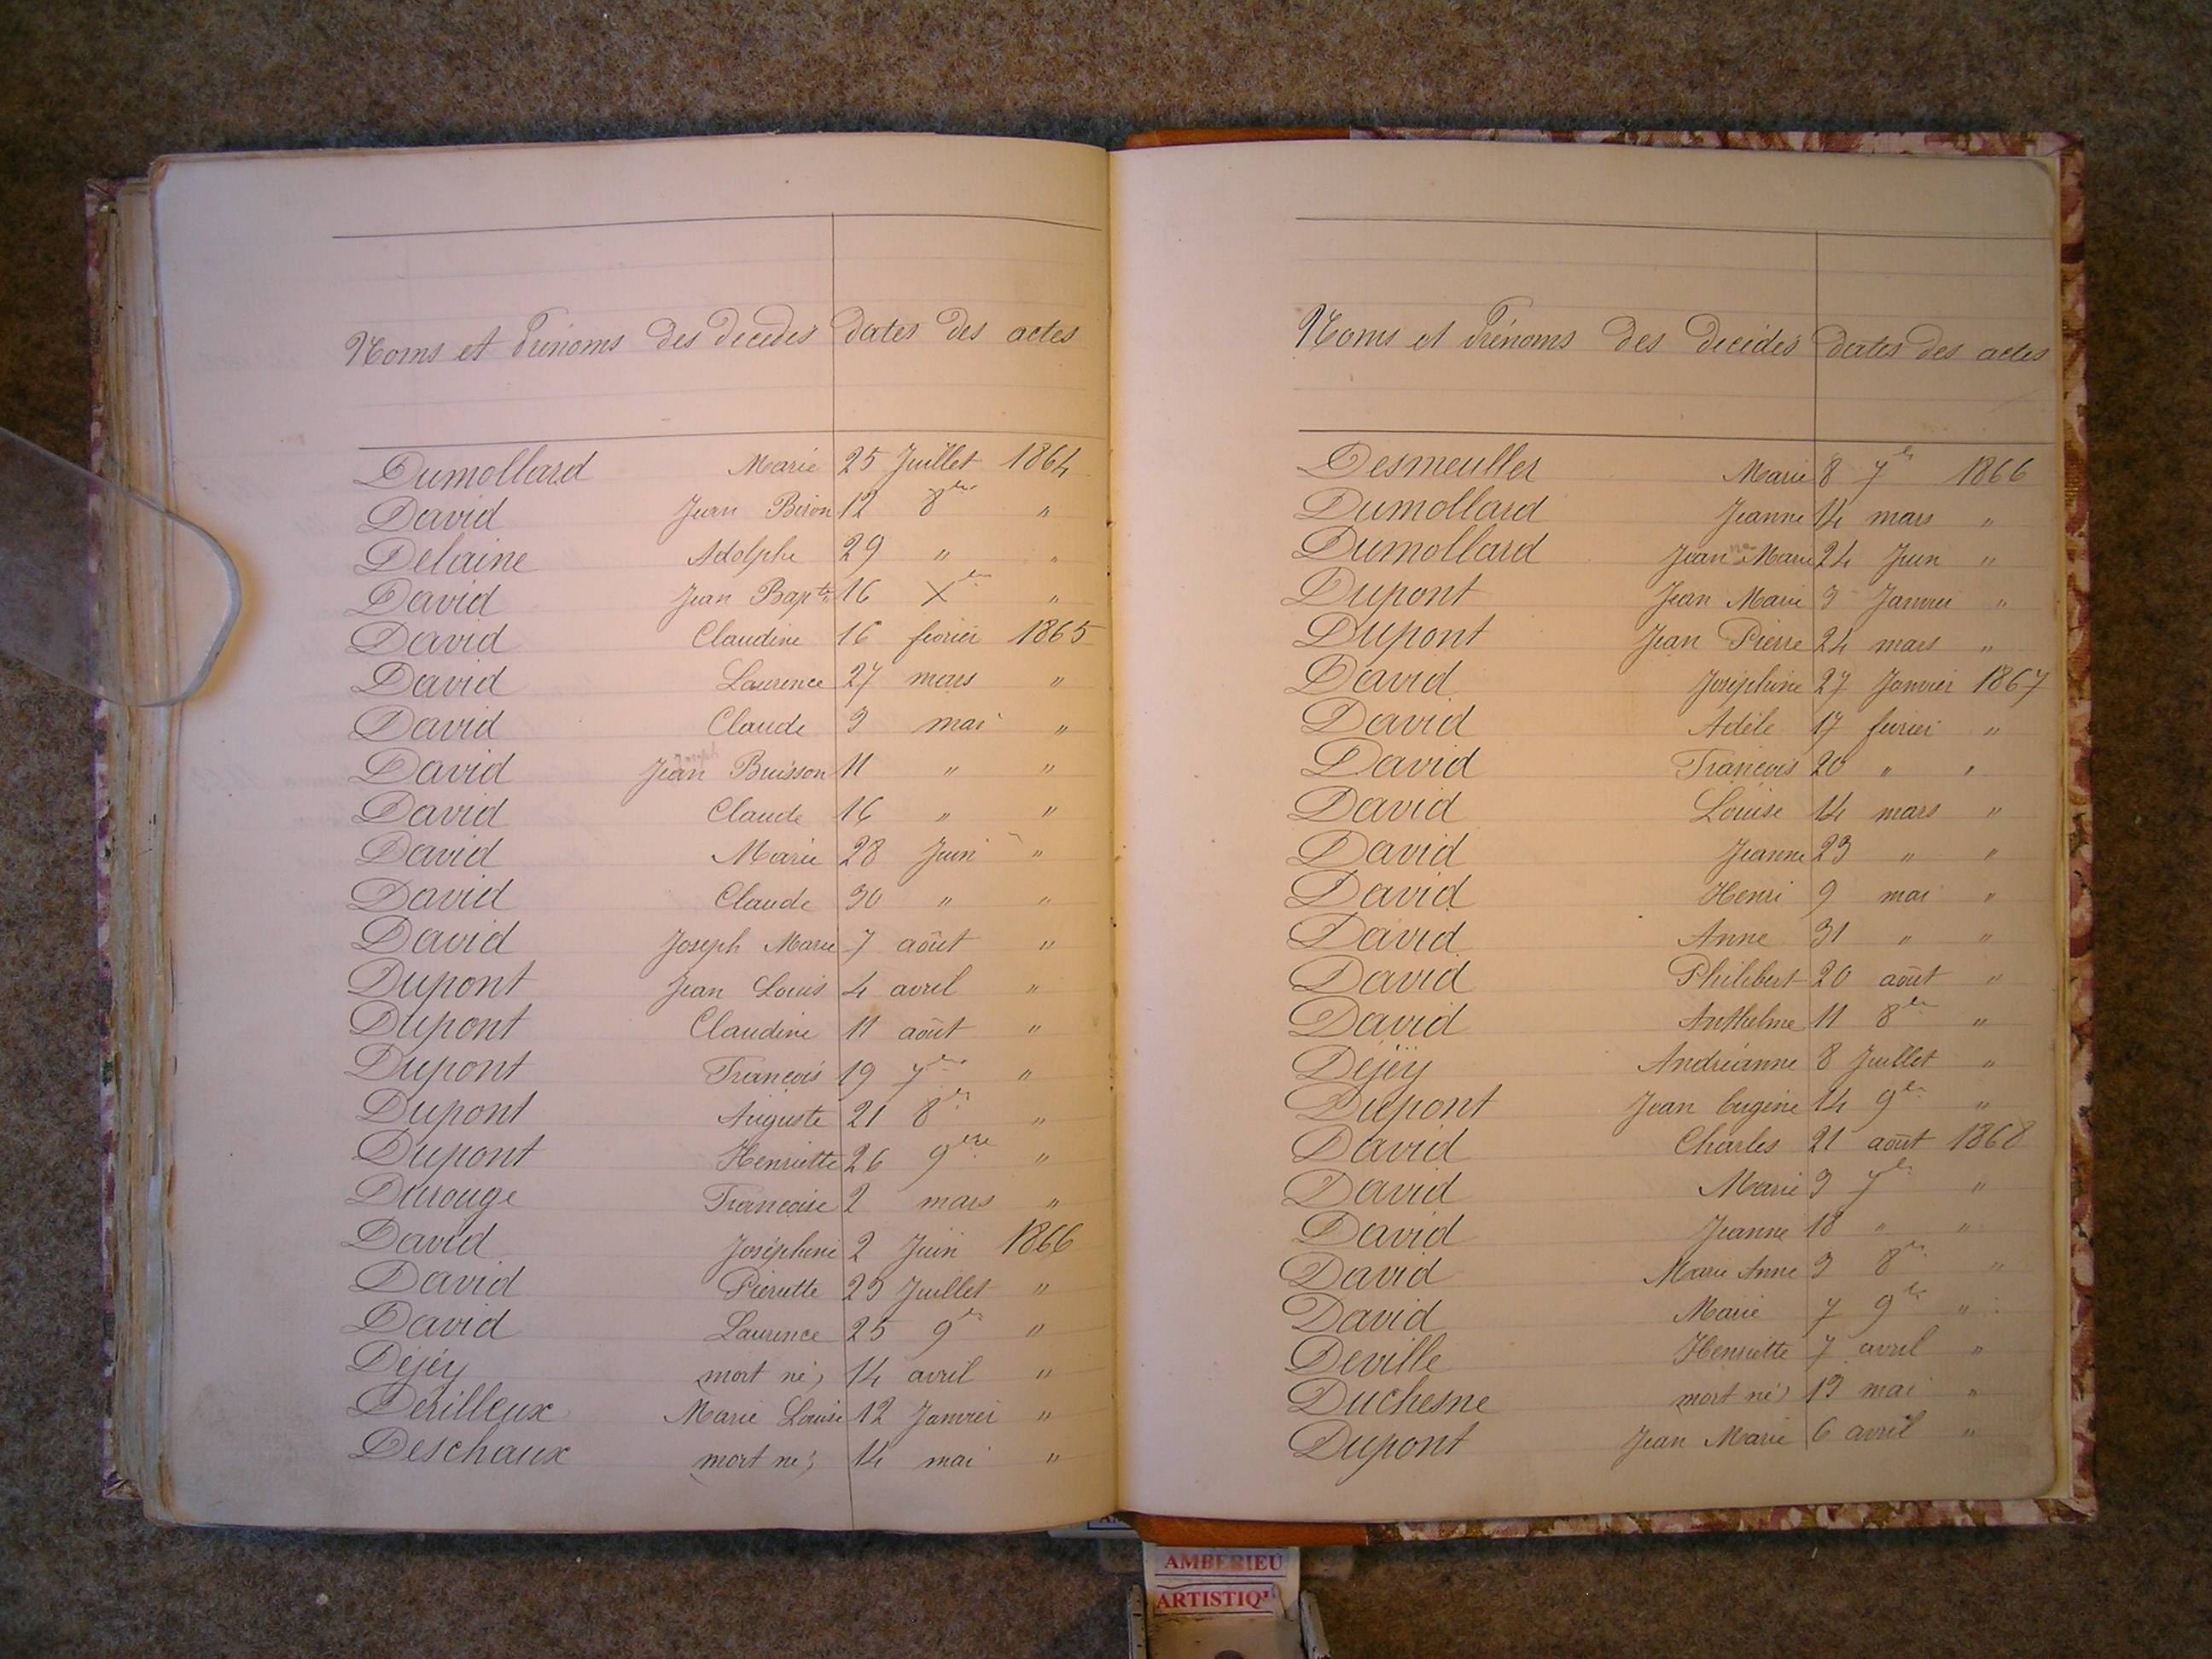 Noms et Prénoms des décédés dates des actes
Dumollard Marie 25 Juillet 1864
David Jean Biron 12 8bre "
Delaine Adolphe 29 " "
David Jean Bapte 16 Xbre "
David Claudine 16 fevrier 1865
David Laurence 27 mars "
David Claude 3 mai "
David Jean Buisson 11 " "
David Claude 16 " "
David Marie 28 Juin "
David Claude 30 " "
David Joseph Marie 7 août "
Dupont Jean Louis 4 avril "
Dupont Claudine 11 août "
Dupont François 19 7bre "
Dupont Auguste 21 8bre "
Dupont Henriette 26 9bre "
Durouge Françoise 2 mars "
David Joséphine 2 Juin 1866
David Pierrette 23 Juillet "
David Laurence 25 9bre "
Déjéy mort né, 14 avril "
Marie Louise 12 Janvier "
Deschaux mort né, 14 mai "
Noms et Prénoms des décédés dates des actes
Desmeulles Marie 8 7bre 1866
Dumollard Jeanne 14 mars "
Dumollard Jeanne Marie 24 Juin "
Dupont Jean Marie 3 Janvier "
Dupont Jean Pierre 24 mars "
David Joséphine 27 Janvier 1867
David Adèle 17 fevrier "
David François 20 " "
David Louise 14 mars "
David Jeanne 23 " "
David Henri 9 mai "
David Anne 31 " "
David Philibert 20 août "
David Anthelme 11 8bre "
Déjëy Andréanne 8 Juillet "
Dupont Jean Eugène 14 9bre "
David Charles 21 août 1868
David Marie 3 7bre "
David Jeanne 18 " "
David Marie Anne 3 8bre "
David Marie 7 9bre "
Deville Henriette 7 avril "
Duchesne mort né) 13 mai "
Dupont Jean Marie 6 avril "
AMBERIEU
ARTISTIQ